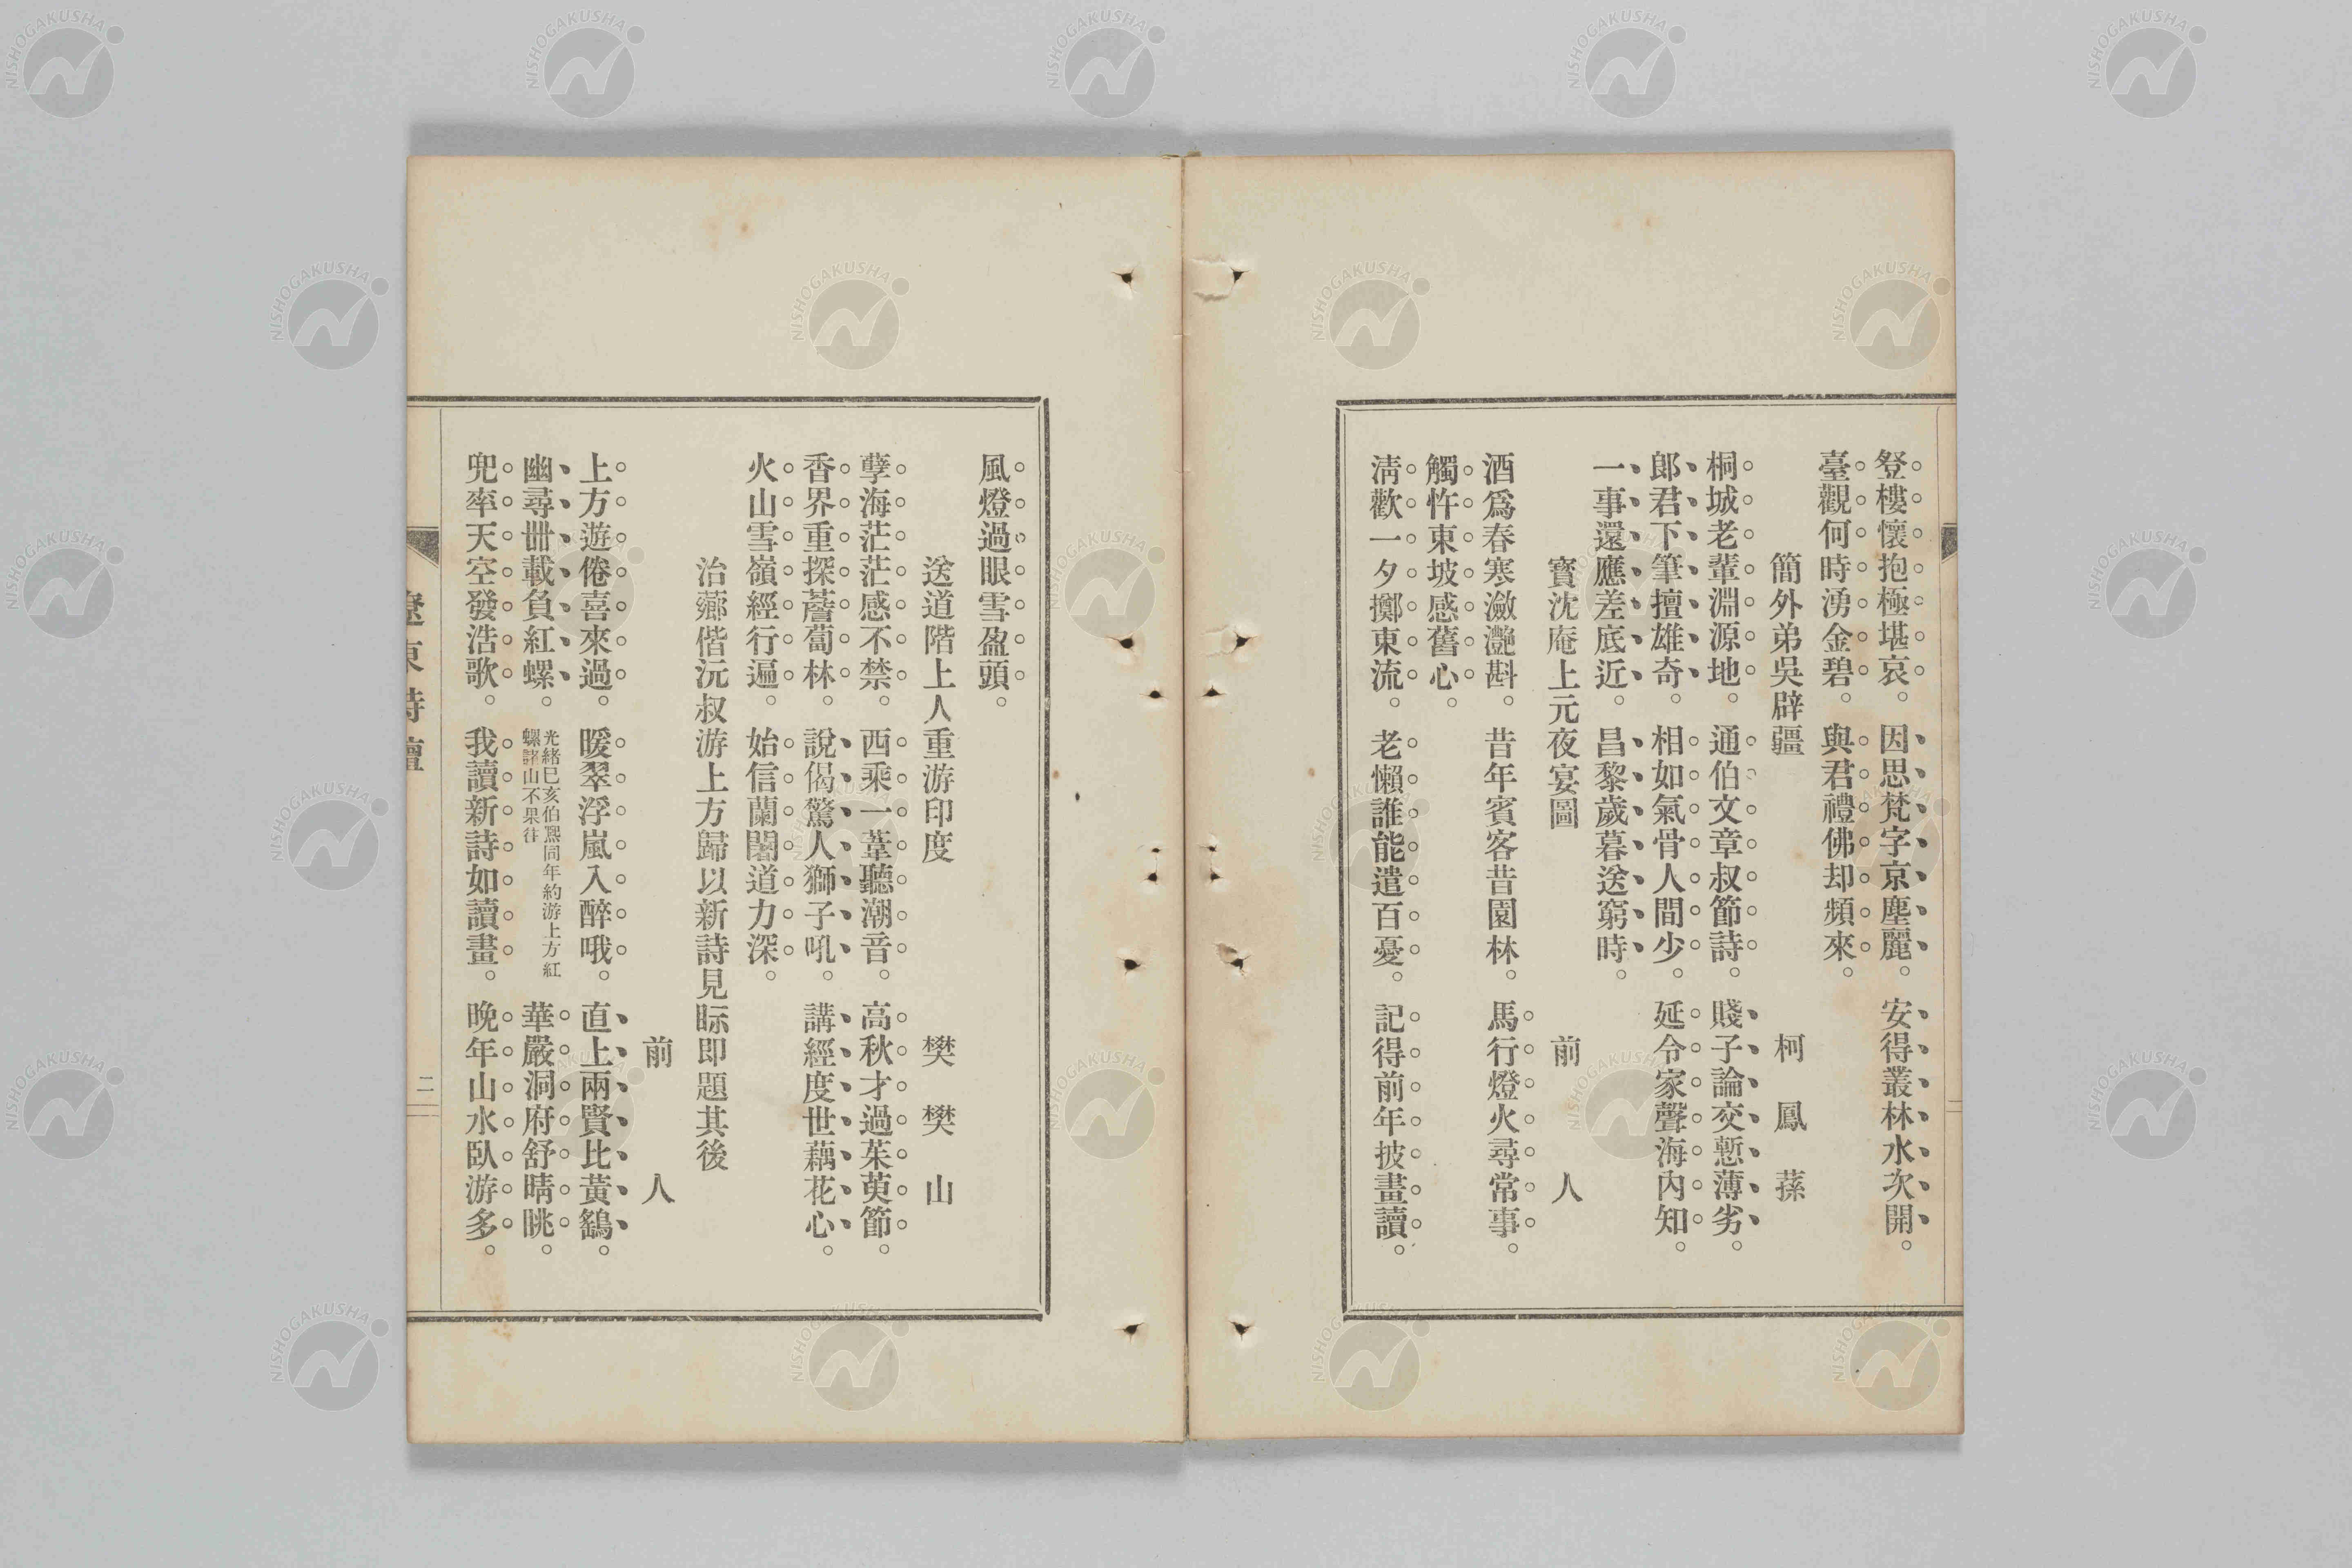 登樓懷抱極堪哀。因思梵字京塵麗。安得叢林水次開。
臺觀何時湧金碧。與君禮佛却頻來。
簡外弟吳辟疆　柯鳳蓀
桐城老輩淵源地。通伯文章叔節詩。賤子論交慙薄劣。
郞君下筆擅雄奇。相如氣骨人間少。延令家聲海內知。
一事還應差底近。昌黎歲暮送窮時。
寶沈庵上元夜宴圖　前人
酒爲春寒瀲灩斟。昔年賓客昔園林。馬行燈火尋常事。
觸忤東坡感舊心。
淸歡一夕擲東流。老懶誰能遣百憂。記得前年披畫讀。
風燈過眼雪盈頭。
送道階上人重游印度　樊樊山
孽海茫茫感不禁。西乘一葦聽潮音。高秋才過茱萸節。
香界重探薝蔔林。說偈驚人獅子吼。講經度世藕花心。
火山雪嶺經行遍。始信蘭闍道力深。
治薌偕沅叔游上方歸以新詩見眎即題其後
前人
上方遊倦喜來過。暖翠浮嵐入醉哦。直上兩賢比黃鵠。
幽尋卌載負紅螺。光緒巳亥伯熈同年約游上方紅螺諸山不果往　華嚴洞府舒晴眺。
兜率天空發浩歌。我讀新詩如讀畫。晚年山水臥游多。
遼東詩壇
二
NISHOGAKUSHA